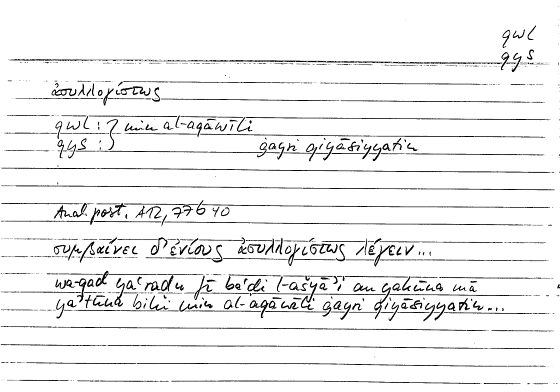 qwl
qys
ἀσυλλογίστως
qwl : } min al-aqāwīli
qys : } ġayri qiyāsiyyatin
Anal. post. A12, 77b40
συμβαίνει δ'ἐνίους ἀσυλλογίστως λέγειν...
wa-qad yaʿraḍu fī baʿḍi l-ašyāʾi an yakūna mā
yaʾtūna bihī min al-aqāwīli ġayri qiyāsiyyatin...